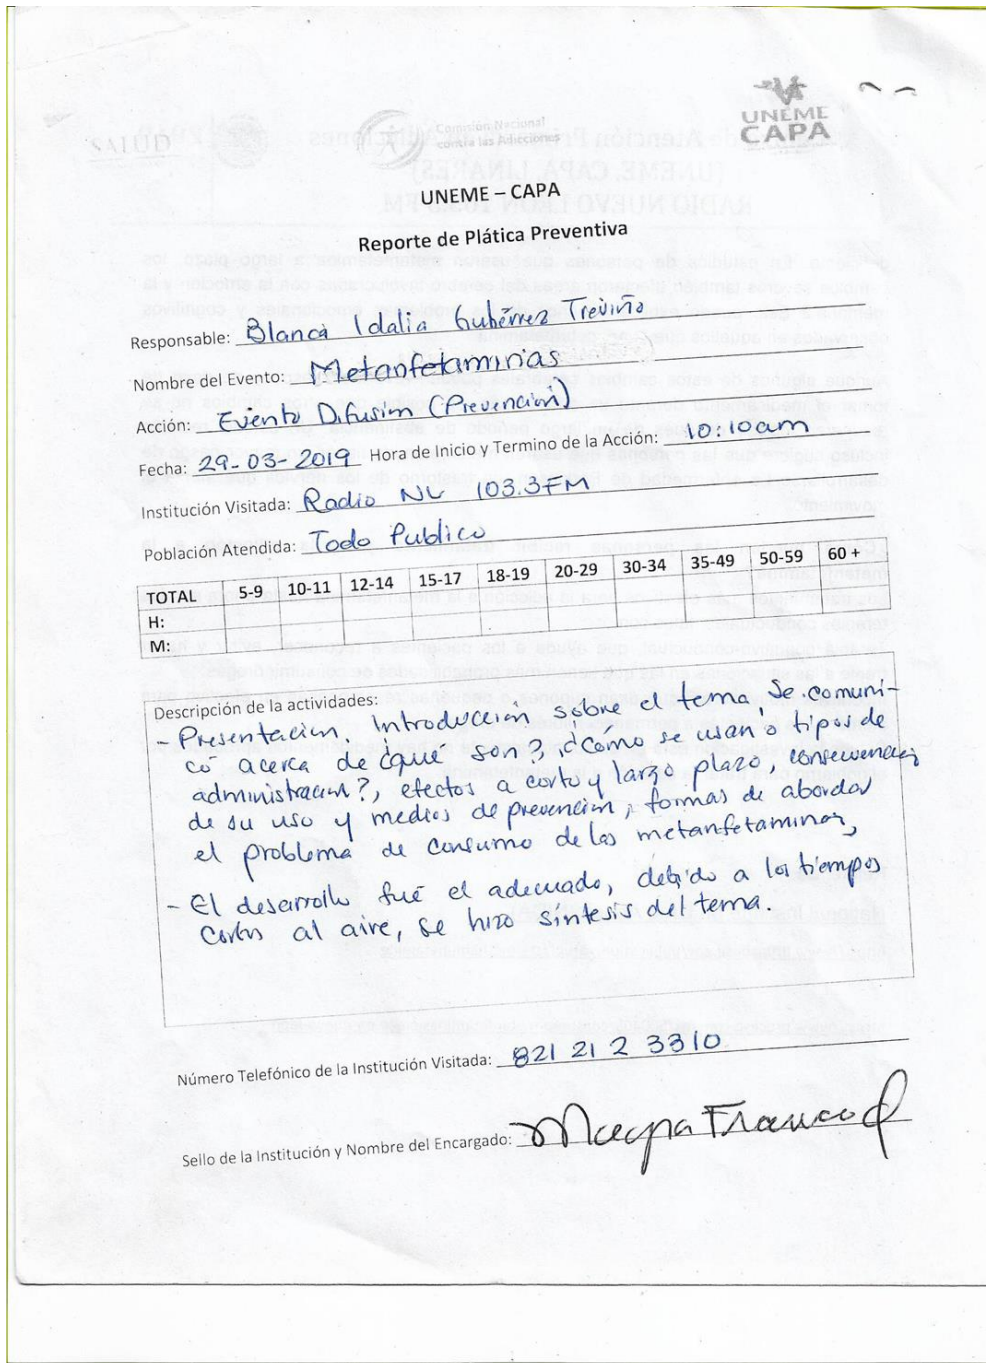 UNEME
CAPA
Comisión Nacional
contra las Adicciones
SALUD
UNEME – CAPA
Reporte de Plática Preventiva
Responsable: Blanca Idalia Gutiérrez Treviño
Nombre del Evento: Metanfetaminas
Acción: Evento Difusión (Prevención)
Fecha: 29-03-2019 Hora de Inicio y Termino de la Acción: 10:10am
Institución Visitada: Radio NL 103.3FM
Población Atendida: Todo Publico
TOTAL 5-9 10-11 12-14 15-17 18-19 20-29 30-34 35-49 50-59 60 +
H:
M:
Descripción de la actividades:
- Presentación, Introducción sobre el tema, Se comuni-
có acerca de ¿qué son?, ¿Cómo se usan o tipos de
administración?, efectos a corto y largo plazo, consecuencias
de su uso y medios de prevención, formas de abordar
el problema de consumo de las metanfetaminas,
- El desarrollo fué el adecuado, debido a los tiempos
cortos al aire, se hizo síntesis del tema.
Número Telefónico de la Institución Visitada: 821 21 2 3310
Sello de la Institución y Nombre del Encargado: Franco